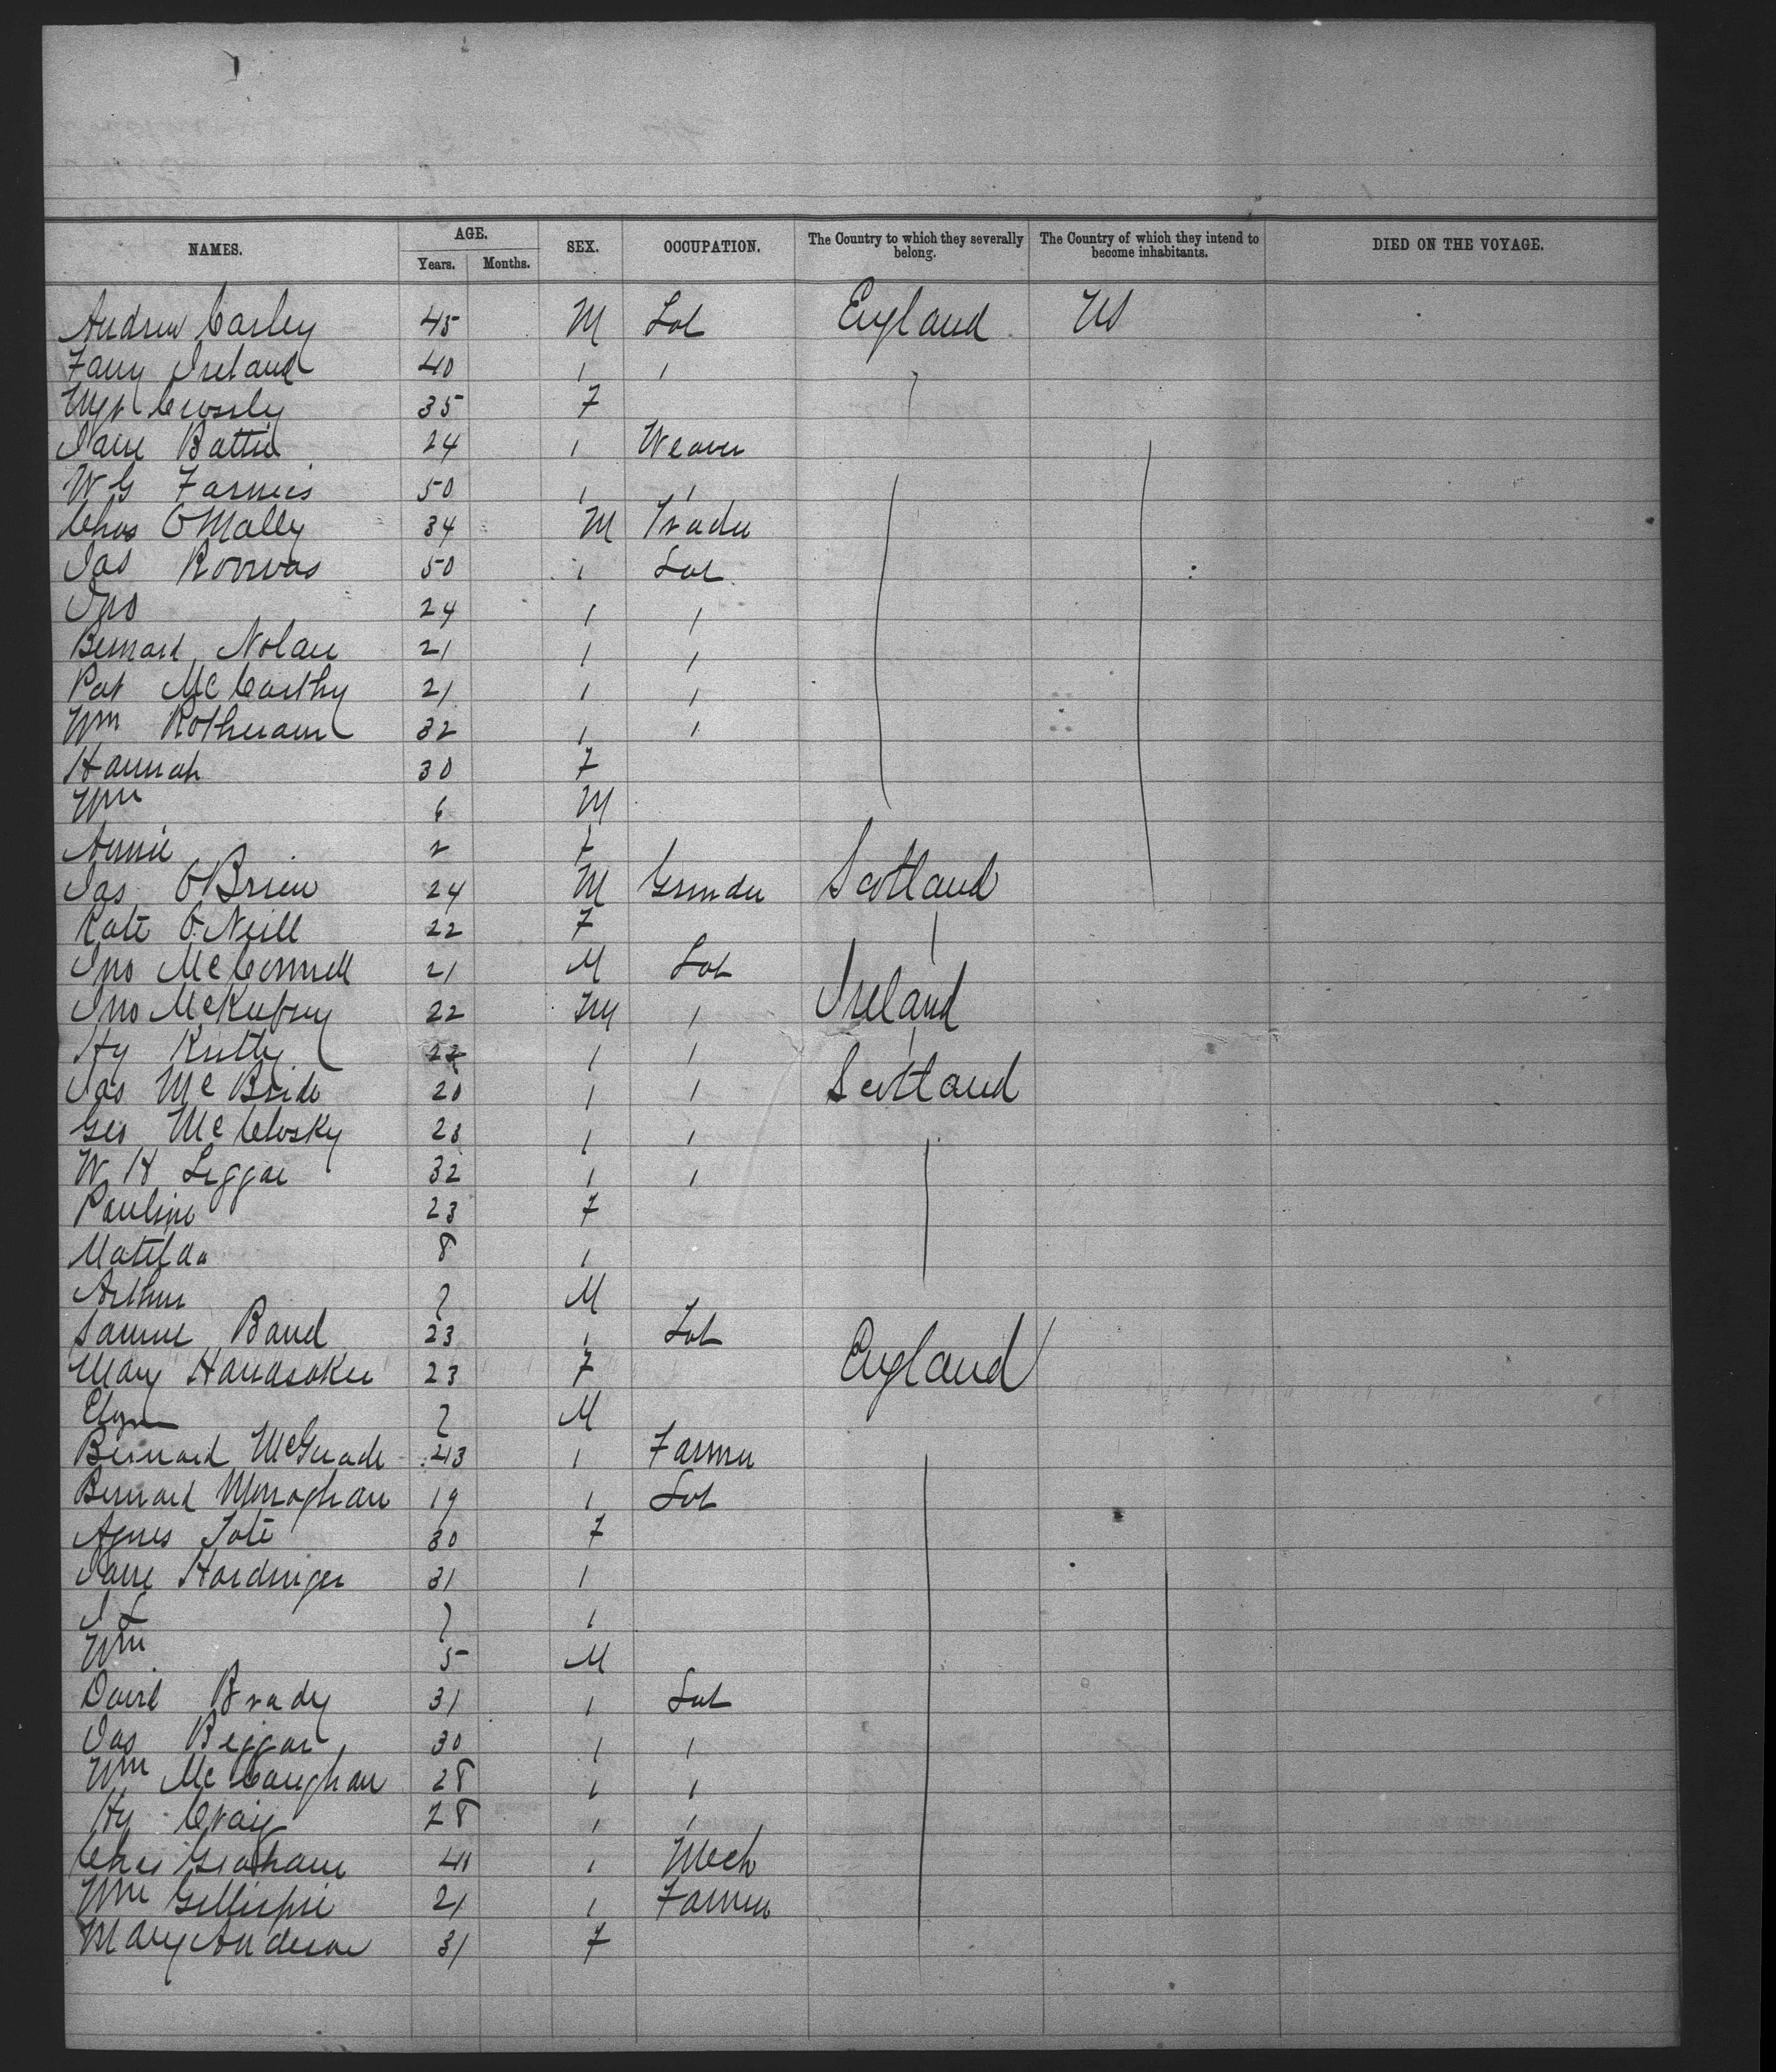 NAMES. AGE. SEX. OCCUPATION. The Country to which they severally belong. The Country of which they intend to become inhabitants. DIED ON THE VOYAGE.
Years. Months.
Andrew Carley 45 M Lab England US
Fany Ireland 40 " "
Mgt Crossly 35 F
Jane Battie 24 " Weaver
W G 50 " "
Chas O'Mally 34 M Trader
Jas 50 " Lab
Jno 24 " "
Bernard Nolan 21 " "
Pat McCarthy 21 " "
Wm Rotheram 32 " "
Hannah 30 F
Wm 6 M
Annie 2 F
Jas O'Brien 24 M Grinder Scotland
Kate O'Neill 22 F
Jno McConnell 21 M Lab
Jno 22 M " Ireland
Hy 22 " "
Jas McBride 20 " " Scotland
Geo McClosky 28 " "
W H 32 " "
Pauline 23 F
Matilda 8 "
Arthur M
Band 23 " Lab
Mary Handsaker 23 F England
M
Bernard McGuade 43 " Farmer
Bernard Monaghan 19 " Lab
Agnes Tate 30 F
Jane Hardinger 31 "
"
Wm 5 M
David Brady 31 " Lab
Jas Beggar 30 " "
Wm McCaughan 28 " "
Hy Craig 28 " "
Chas Graham " Mech
Wm Gillispie 21 " Farmer
Mary Anderson 31 F